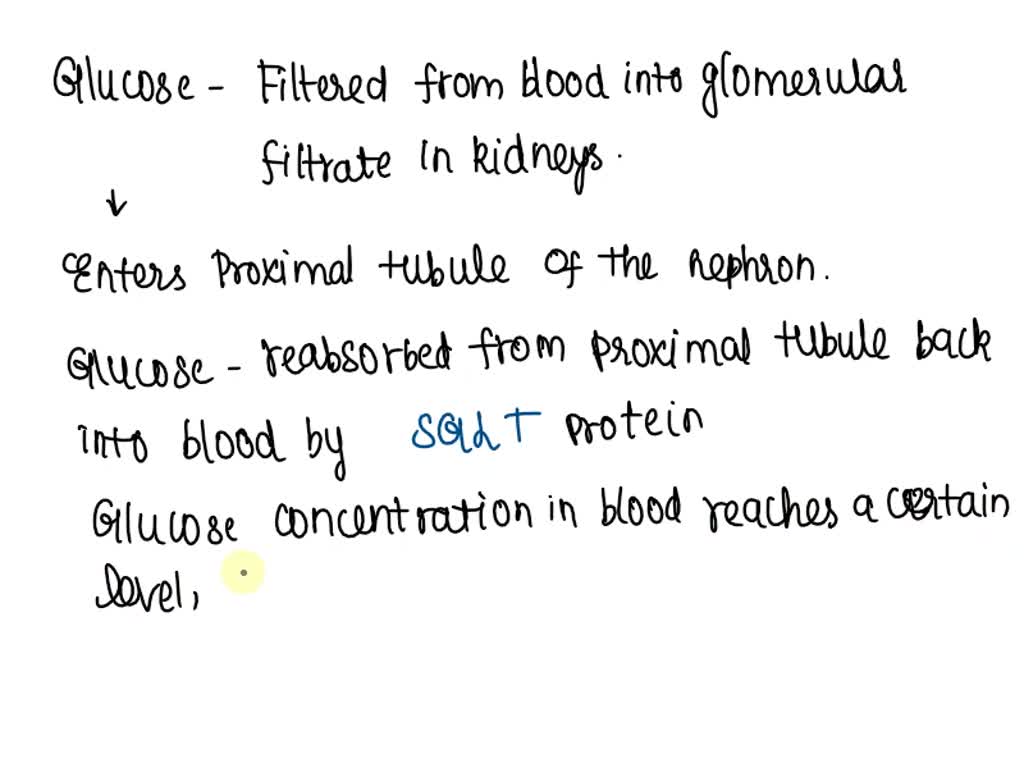 Glucose - Filtered from blood into glomerular
filtrate in kidneys.
↓
Enters proximal tubule of the nephron.
Glucose - reabsorbed from proximal tubule back
into blood by SGLT protein
Glucose concentration in blood reaches a certain
level,